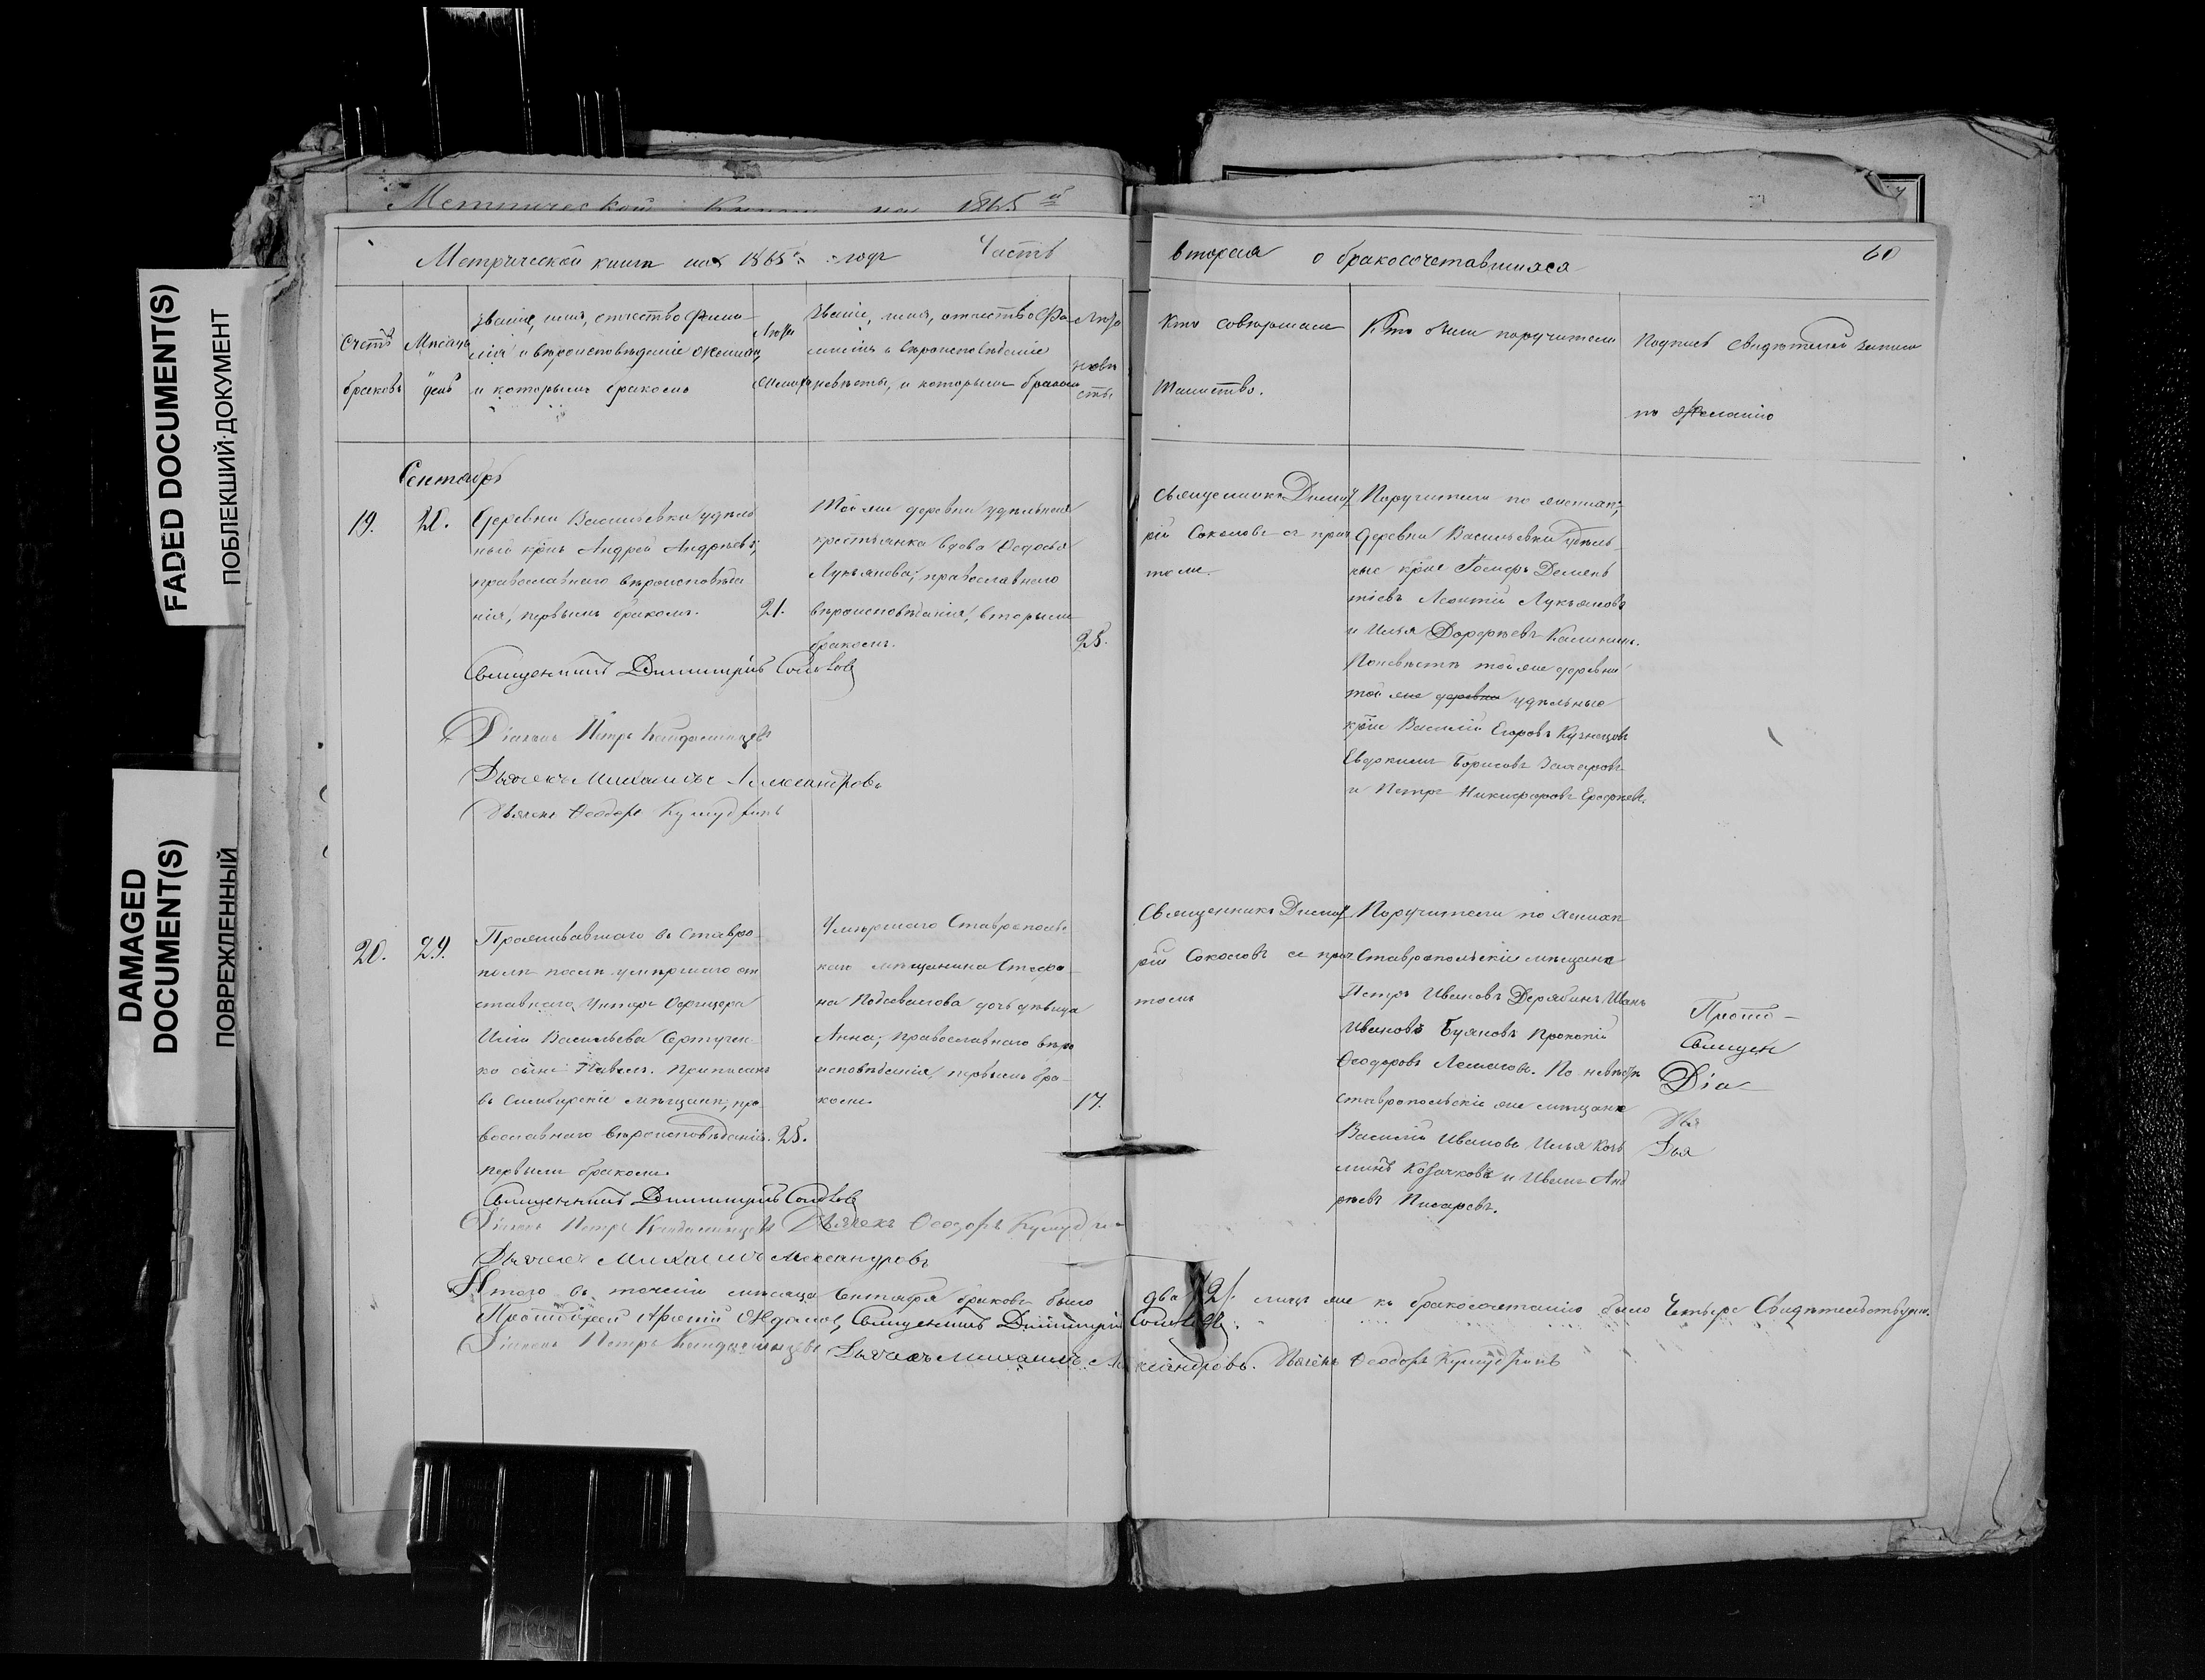 FADED DOCUMENT(S)
ПОБЛЕКШИЙ ДОКУМЕНТ
DAMAGED
DOCUMENT(S)
ПОВРЕЖДЕННЫЙ
Метрической книги на 1865й
Метрической книги на 1865й годъ Часть
вторая о бракосочетавшихся 60
Счетъ
браковъ
Мѣсяцъ
день
Званіе, имя, отчество фами-
лія и вѣроисповѣданіе жениха,
и которымъ бракомъ
Лѣта
жениха
Званіе, имя, отчество фа-
милія и вѣроисповѣданіе
невѣсты, и которымъ бракомъ
Лѣта
невѣ
сты
Кто совершалъ
таинство.
Кто были поручители
Подпись свидѣтелей записи
по желанію
Сентябрь
19.
Деревни Васильевки удѣль
ный крнъ Андрей Андреевъ,
православнаго вѣроисповѣда
нія, первымъ бракомъ.
21.
Той же деревни удѣльная
крестьянка вдова Ѳедосья
Лукьянова, православнаго
вѣроисповѣданія, вторымъ
бракомъ.
25.
Священникъ Димит
рій Соколовъ съ прич
томъ.
Поручители по женихѣ,
деревни Васильевки удѣль
ные крне Демень
тіевъ Леонтій Лукьяновъ
и Илья Дорофѣевъ Калининъ.
По невѣстѣ той же деревни
той же деревни удѣльные
крне Василій Егоровъ Кузнецовъ
Евдокимъ Борисовъ Захаровъ
и Петръ Никифоровъ Ерофѣевъ.
Священникъ Димитрій Соколовъ
Діаконъ Петръ
Дьячекъ Михаилъ Александровъ
Дьячекъ Ѳеодоръ
20.
29.
Проживавшаго въ Ставро
полѣ послѣ умершаго от
ставнаго Унтеръ Офицера
Ильи Васильева
ко сынъ Павелъ. Приписанъ
въ Симбирскіе мѣщане, пра
вославнаго вѣроисповѣданія.
первымъ бракомъ.
25.
Умершаго Ставрополь
каго мѣщанина Стефа
на дочь дѣвица
Анна, православнаго вѣро
исповѣданія, первымъ бра
комъ.
17.
Священникъ Димит
рій Соколовъ съ прич
томъ
Поручители по женихѣ
Ставропольскіе мѣщане
Петръ Ивановъ Дерябинъ Иванъ
Ивановъ Буяновъ Прокопій
Ѳеодоровъ По невѣстѣ
ставропольскіе же мѣщане
Василій Ивановъ Илья Козь
минъ Козачковъ и Иванъ Анд
реевъ Писаревъ.
Прото-
Священ
Діа
Дья
Дья
Священникъ Димитрій Соколовъ
Діаконъ Петръ Дьячекъ Ѳеодоръ
Дьячекъ Михаилъ Александровъ
Итого въ теченіи мѣсяца Сентября браковъ было два /2/. лицъ же къ бракосочетанію было Четыре Свидѣтельствуемъ.
Протоіерей Священникъ Димитрій Соколовъ.
Діаконъ Петръ Дьячекъ Михаилъ Александровъ. Дьячекъ Ѳеодоръ